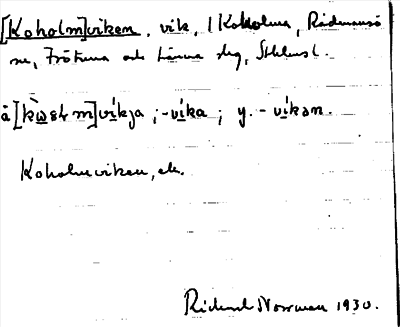 [Koholm]viken, vik, i Koholma, Rådmansö
sn, Frötuna och Länna skg, Sthlms l.
å [kɷɛɫm]vi̍kja; -vi̍ka; y. -vi̍kən.
Koholmeviken, ek.
Rickard Norrman 1930.